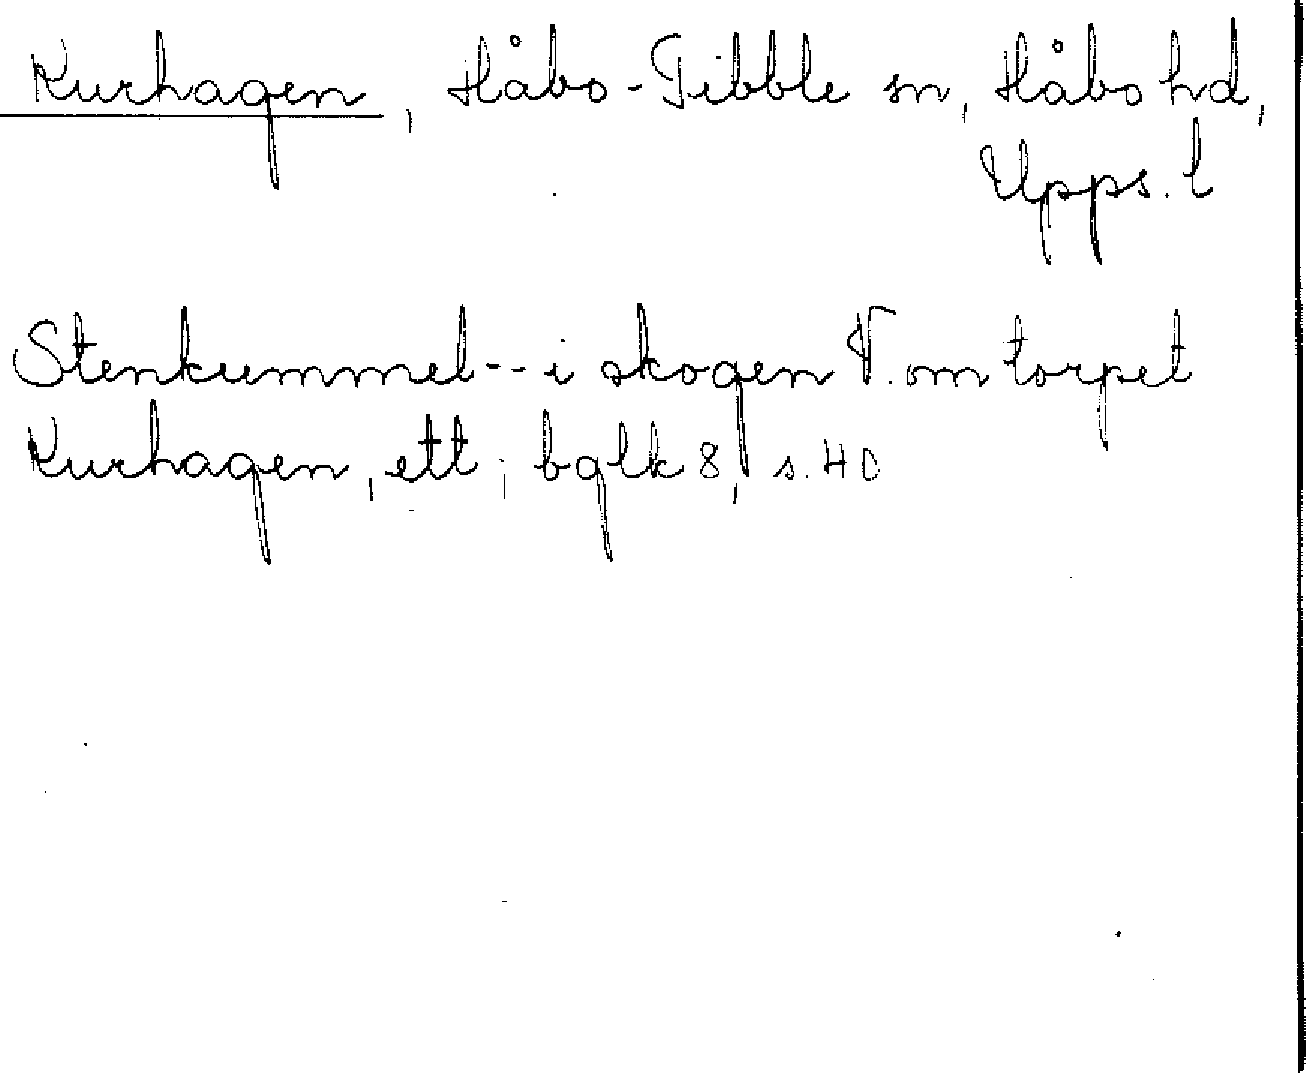 Kurhagen, Håbo-Tibble sn, Håbo hd,
Upps. l
Stenkummel -- i skogen V. om torpet
Kurhagen, ett; bglk 8, s. 40